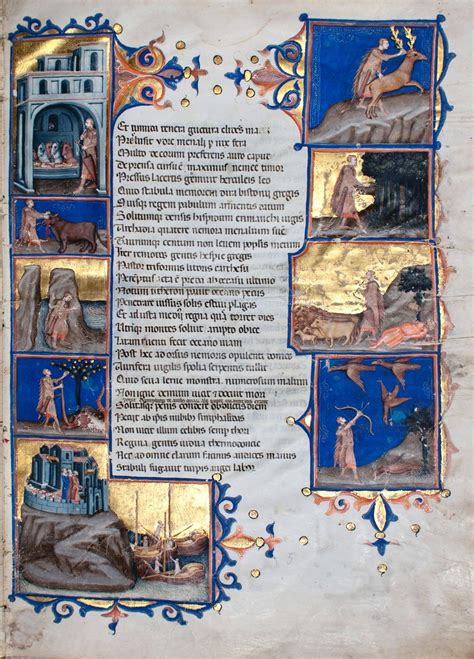 Et tumidi tenera guttura elidens manu
Prolusit ydre menali pernix fera
Multo decorum preferens auro caput
Deprensa cursu est maximus nemee timor
Pressus lacertis gemuit herculeis leo
Quid stabula memorem dira bistonii gregis
Suisque regem pabulum armentis datum
Solitumque densis hispidum erimanthi iugis
Archadia quatere nemora menalium suem
Taurumque centum non leuem populis metum
Inter remotos gentis hesperie greges
Pastor triformis litoris carthesii
Peremptus acta est preda ab occasu ultimo
Notum citheron pauit oceano pecus
Penetrare iussus solis estiui plagas
Et adusta medius regna que torret dies
Utrimque montes soluit abrupto obice
Latam ruenti fecit oceano uiam
Post hec adortus nemoris opulenti domos
Aurifera uigilis spolia serpentis tulit
Quid seua lerne monstra numerosum malum
Non igne demum uicit et docuit mori
Solitasque pennis condere obductis diem
Non uicit illum celibis semper thori
Regina gentis uidua thermodontie
Nec ad omne clarum facinus audaces manus
Stabuli fugauit turpis augei labor